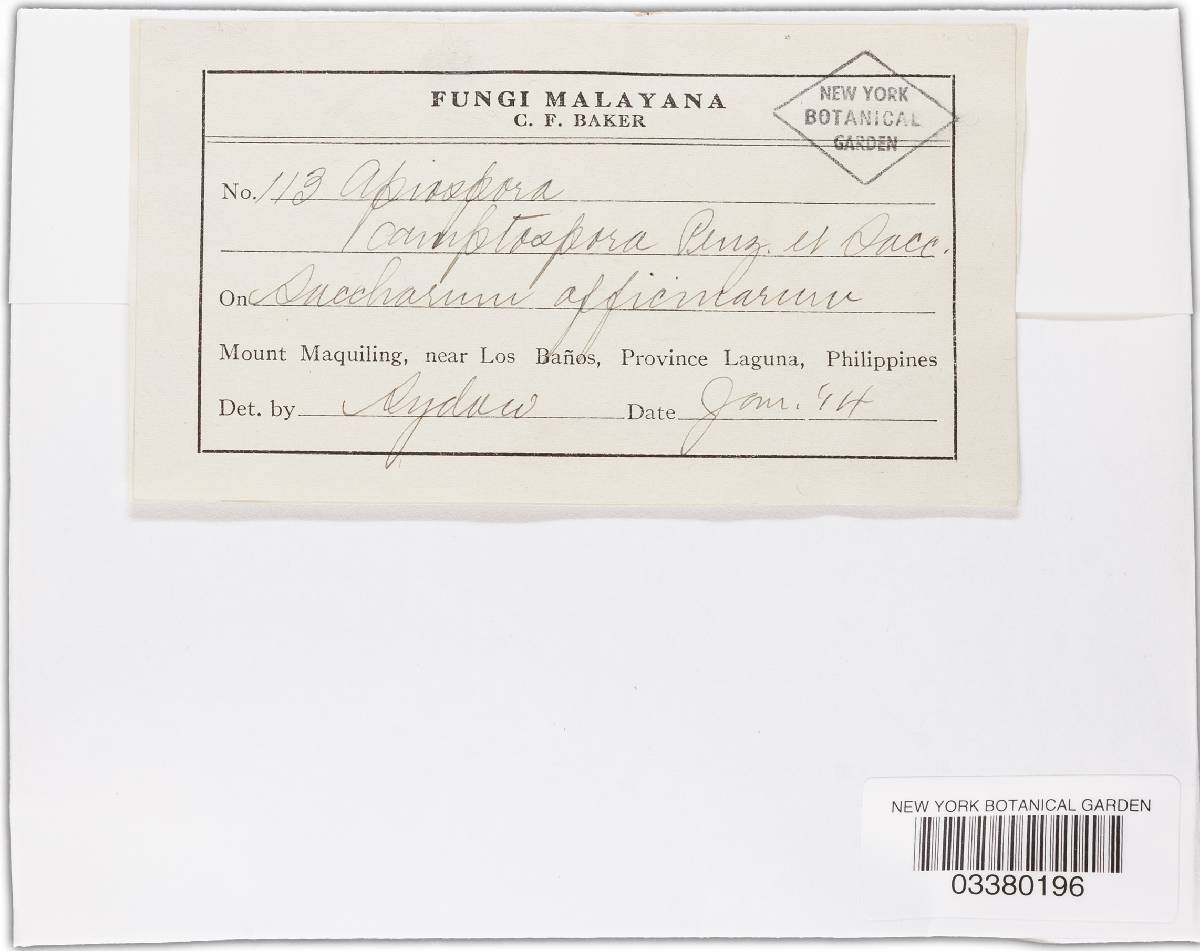 FUNGI MALAYANA
C. F. BAKER
NEW YORK
BOTANICAL
GARDEN
No. 113 Apiospora
camptospora Penz. et Sacc.
On Saccharum officinarum
Mount Maquiling, near Los Baños, Province Laguna, Philippines
Det. by Sydow Date Jan. '14
NEW YORK BOTANICAL GARDEN
03380196